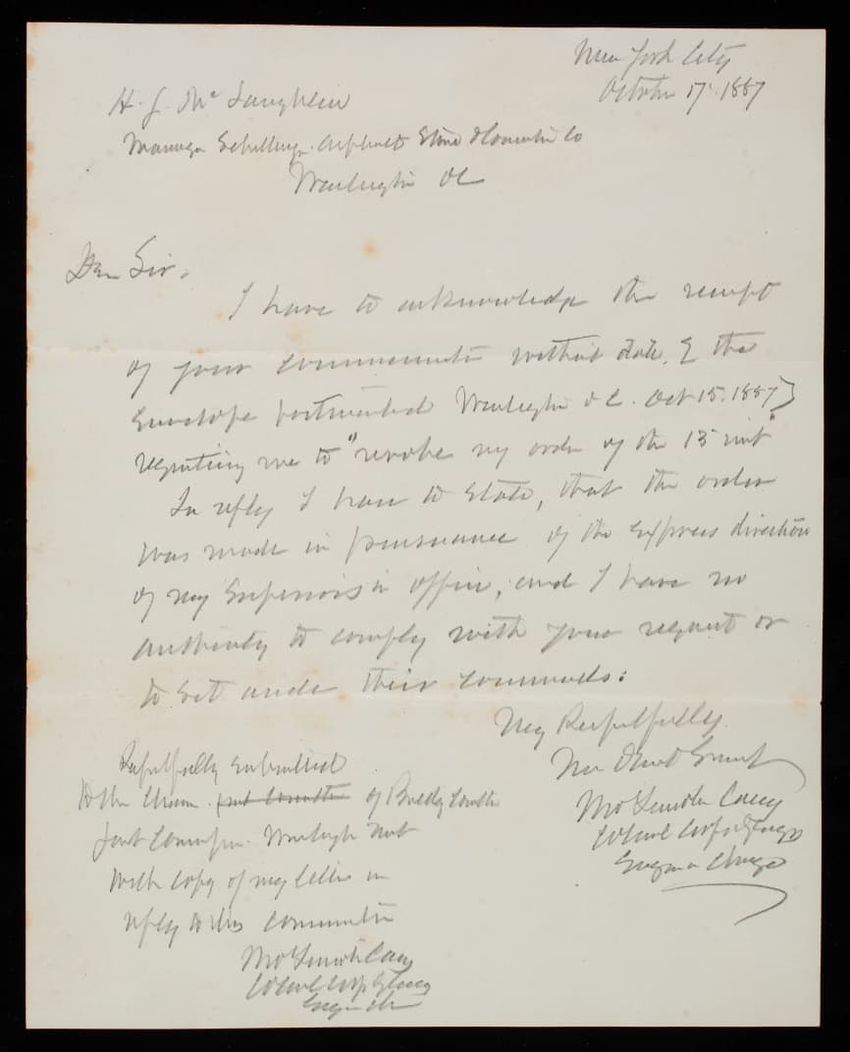 New York City
October 17. 1887
H. L. McLaughlin
Manager Schillinger Asphalt Stone & Concrete Co
Washington DC
Dear Sir,
I have to acknowledge the receipt
of your communication without date, & the
Envelope postmarked Washington D C. Oct 15. 1887)
requesting me to "revoke my order of the 13 inst"
In reply I have to State, that the order
was made in pursuance of the Express direction
of my Superiors in office, and I have no
authority to comply with your request or
to Set aside their commands:
Very Respectfully
Your Obedt Servant
Thos Lincoln Casey
Colonel Corps of Engrs
Engineer Charge
Respectfully Submitted
to the Chairm. of Buildg Comtte
Joint Commssn.
With copy of my letter in
reply to this communication
Thos Lincoln Casey
Colonel Corps of Engrs